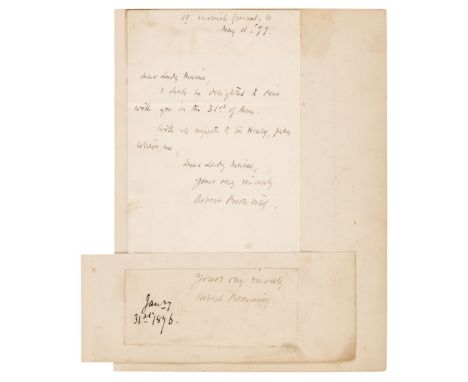 19. Warwick Crescent, W
May 11. '77.
Dear Lady Maine,
I shall be delighted to dine
with you on the 31st of May.
With all respects to Sir Henry, pray
believe me,
Dear Lady Maine,
yours very sincerely
Robert Browning.
Yours very sincerely
Robert Browning
Jany
31st 1876.